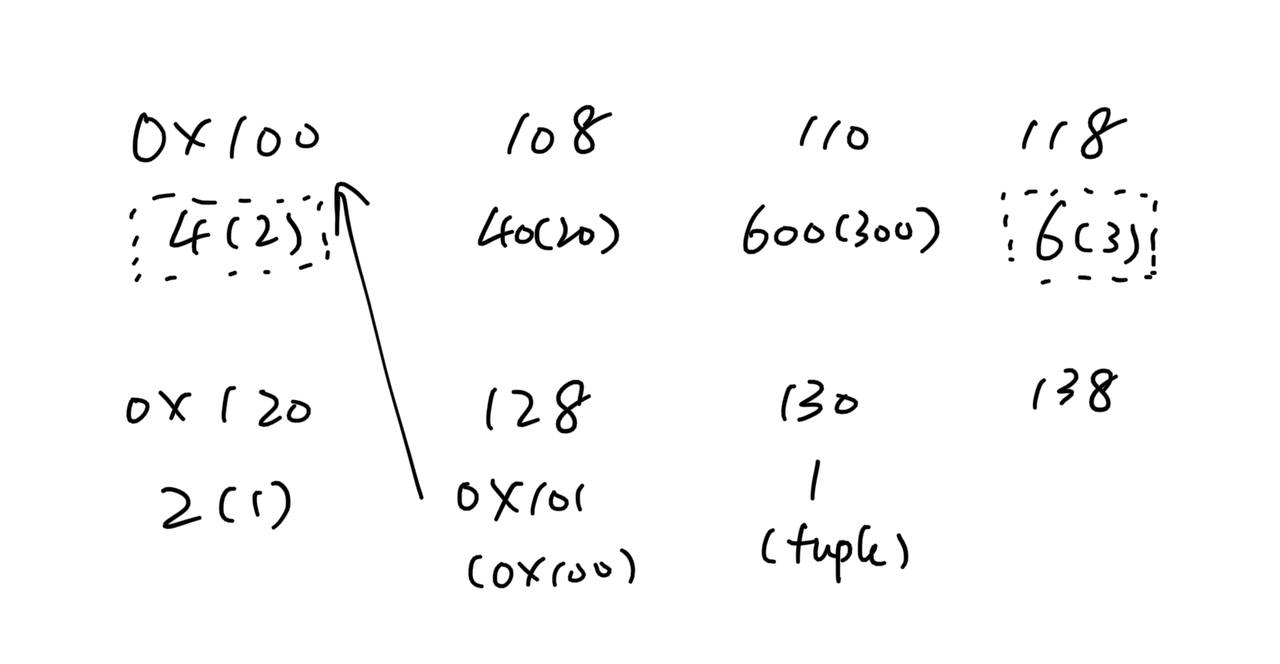 0X100 108 110 118
4(2) 40(20) 600(300) 6(3)
0X120 128 130 138
2(1) 0X101 1
(0X100) (tuple)